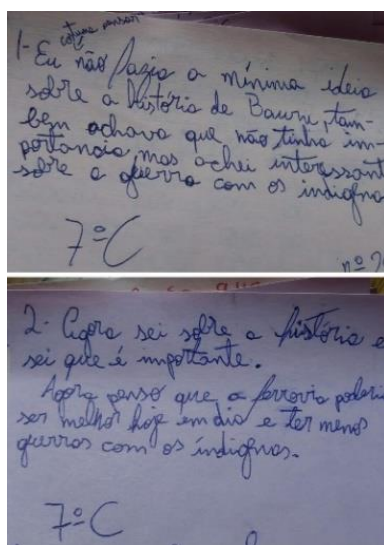 costumo pensar
1- Eu não fazia a mínima ideia
sobre a história de Bauru, tam-
bém achava que não tinha im-
portancia, mas achei interessant
sobre a guerra com os indígna
7º C
nº 2
2- Agora sei sobre a história e
sei que é importante.
Agora penso que a ferrovia poderi
ser melhor hoje em dia e ter menos
guerras com os indígnas.
7º C